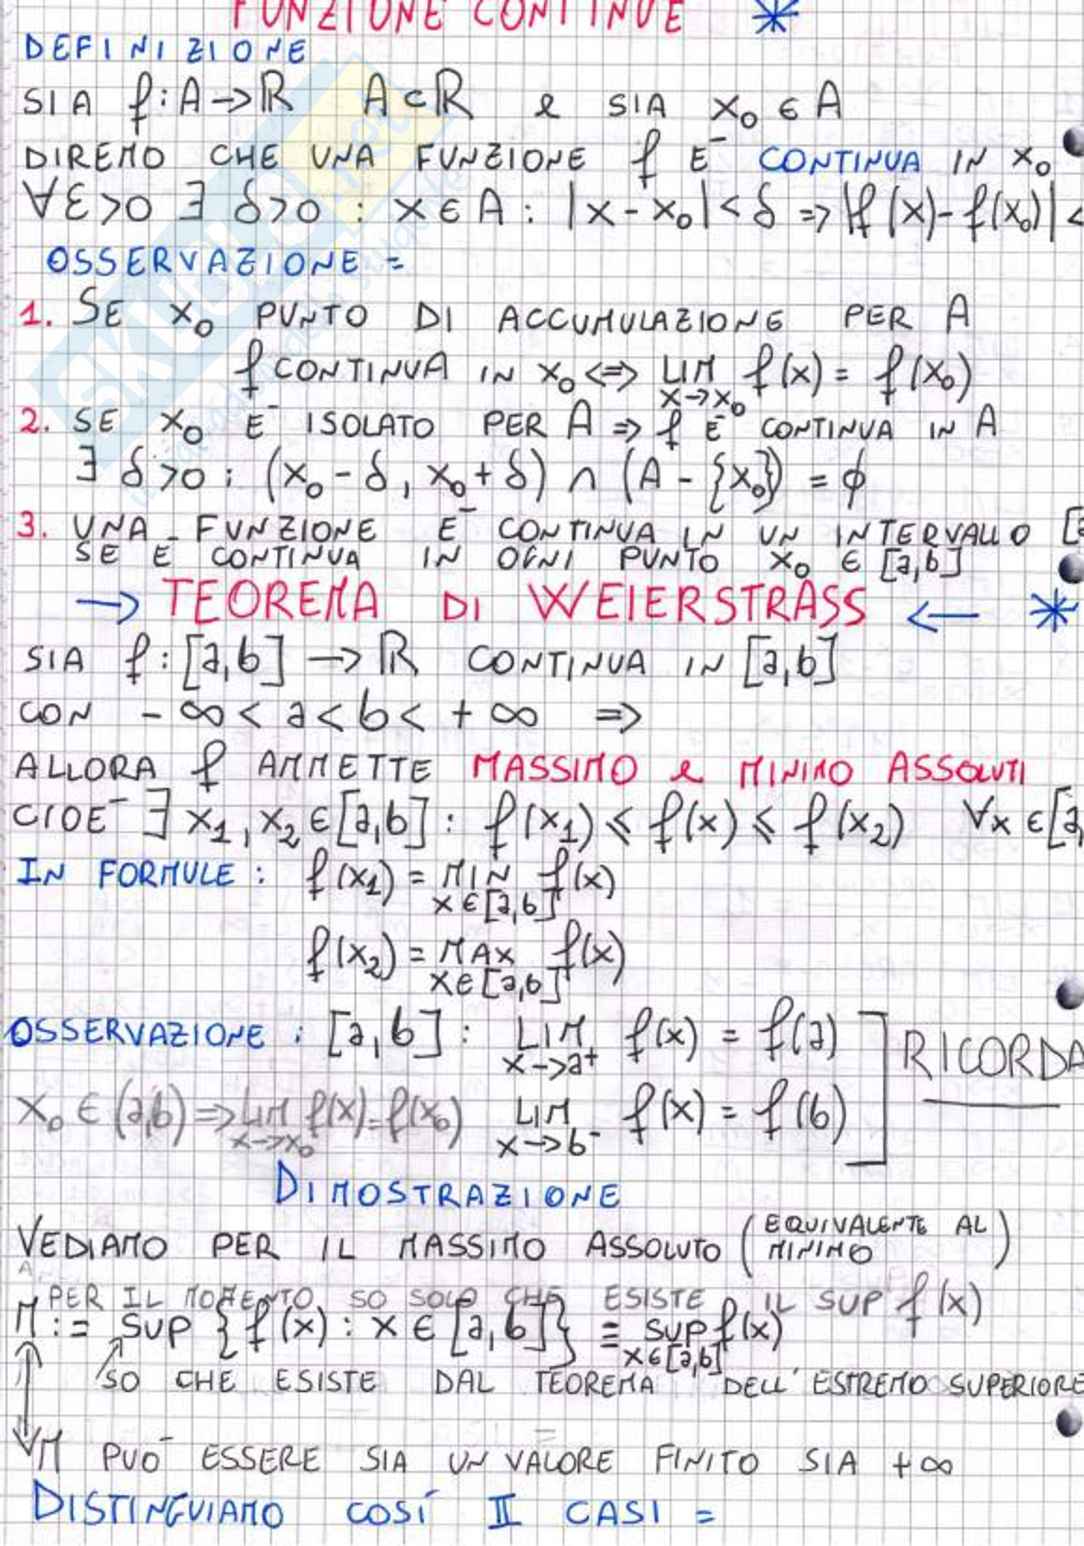 FUNZIONE CONTINUE *
DEFINIZIONE
SIA f: A → ℝ A ⊂ ℝ e SIA x₀ ∈ A
DIREMO CHE UNA FUNZIONE f E¯ CONTINUA IN x₀
∀ε>0 ∃ δ>0 : x ∈ A : |x - x₀| < δ ⇒ |f(x) - f(x₀)| <
OSSERVAZIONE =
1. SE x₀ PUNTO DI ACCUMULAZIONE PER A
f CONTINUA IN x₀ <=> LIM x→x₀ f(x) = f(x₀)
2. SE x₀ E¯ ISOLATO PER A ⇒ f E¯ CONTINUA IN A
∃ δ>0 : (x₀ - δ, x₀ + δ) ∩ (A - {x₀}) = ϕ
3. UNA FUNZIONE E¯ CONTINUA IN UN INTERVALLO [a
SE E¯ CONTINUA IN OGNI PUNTO x₀ ∈ [a,b]
→ TEOREMA DI WEIERSTRASS ← *
SIA f: [a,b] → ℝ CONTINUA IN [a,b]
CON - ∞ < a < b < + ∞ ⇒
ALLORA f AMMETTE MASSIMO e MINIMO ASSOLUTI
CIOE¯ ∃ x₁, x₂ ∈ [a,b] : f(x₁) ⩽ f(x) ⩽ f(x₂) ∀x ∈ [a,
IN FORMULE : f(x₁) = MIN x∈[a,b] f(x)
f(x₂) = MAX x∈[a,b] f(x)
OSSERVAZIONE : [a,b] : LIM x→a⁺ f(x) = f(a) ] RICORDA
x₀ ∈ (a,b) ⇒ LIM x→x₀ f(x) = f(x₀) LIM x→b⁻ f(x) = f(b)
DIMOSTRAZIONE
VEDIAMO PER IL MASSIMO ASSOLUTO (EQUIVALENTE AL MINIMO)
PER IL MOMENTO SO SOLO CHE ESISTE IL SUP f(x)
M := SUP {f(x) : x ∈ [a,b]} ≡ SUP x∈[a,b] f(x)
SO CHE ESISTE DAL TEOREMA DELL'ESTREMO SUPERIORE
M PUO¯ ESSERE SIA UN VALORE FINITO SIA +∞
DISTINGUIAMO COSÍ II CASI =